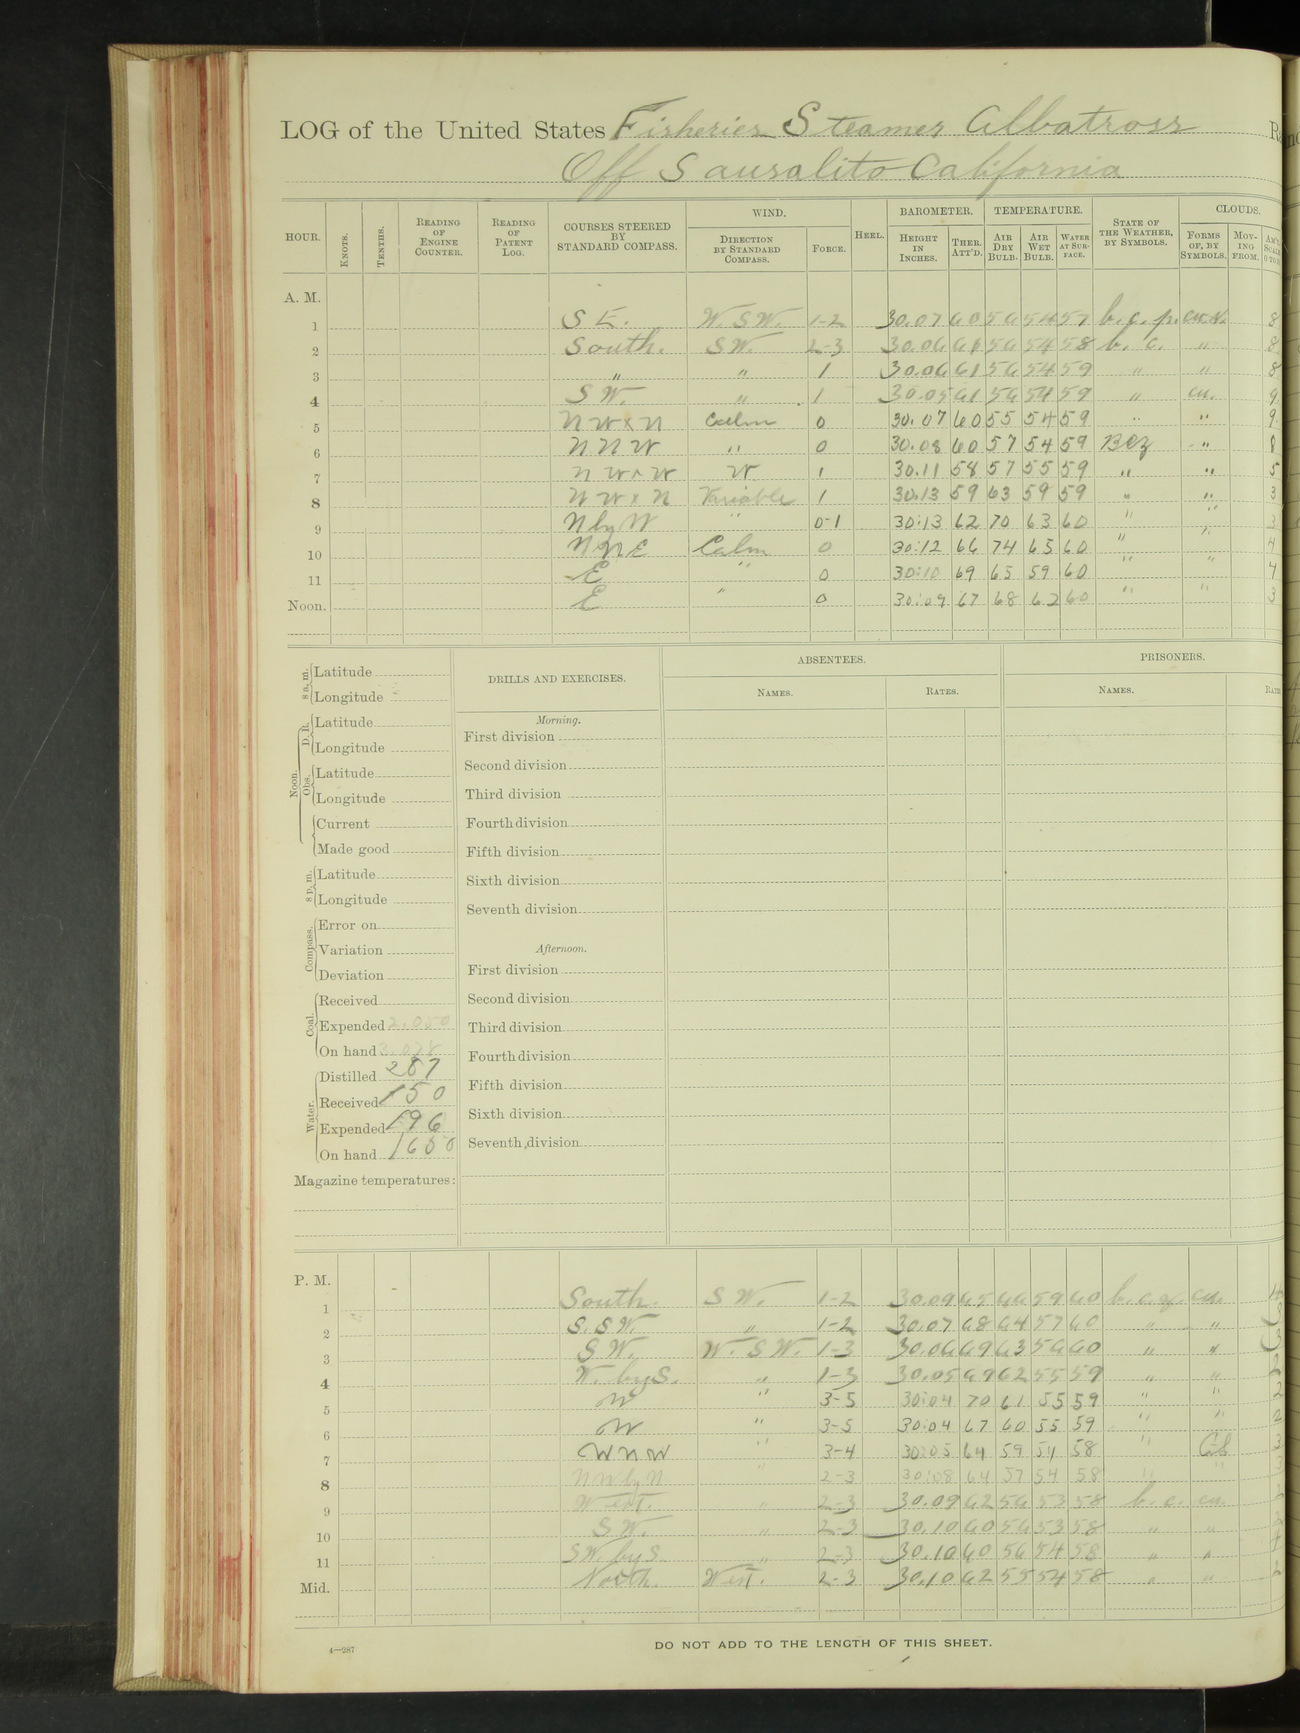 LOG of the United States Fisheries Steamer Albatross
Off Sausalito California
HOUR. KNOTS. TENTHS. READING OF ENGINE COUNTER. READING OF PATENT LOG. COURSES STEERED BY STANDARD COMPASS. WIND. DIRECTION BY STANDARD COMPASS. FORCE. HEEL. BAROMETER. HEIGHT IN INCHES. THER. ATT'D. TEMPERATURE. AIR DRY BULB. AIR WET BULB. WATER AT SURFACE. STATE OF THE WEATHER, BY SYMBOLS. CLOUDS. FORMS OF, BY SYMBOLS. MOVING FROM.
A. M.
1 S E. W. S W. 1-2 30.07 60 56 54 57 b. c. p. cu. n. 8
2 South. SW. 2-3 30.06 61 56 54 58 b. c. " 8
3 " " 1 30.06 61 56 54 59 " " 8
4 S W. " 1 30.05 61 56 54 59 " cu. 9
5 N W x N Calm 0 30.07 60 55 54 59 " " 9
6 N N W " 0 30.08 60 57 54 59 Bcz " 8
7 N W x W W 1 30.11 58 57 55 59 " " 5
8 N W x N Variable 1 30.13 59 63 59 59 " " 3
9 N by W " 0-1 30:13 62 70 63 60 " " 3
10 NNE Calm 0 30:12 66 74 65 60 " " 4
11 E " 0 30:10 69 65 59 60 " " 4
Noon. E " 0 30:09 67 68 62 60 " " 3
8 a. m. Latitude
Longitude
Noon. D. R. Latitude
Longitude
Obs. Latitude
Longitude
Current
Made good
8 p. m. Latitude
Longitude
Compass. Error on
Variation
Deviation
Coal. Received
Expended 2.050
On hand 3.078
Water. Distilled 287
Received 150
Expended 196
On hand 1650
Magazine temperatures:
DRILLS AND EXERCISES.
Morning.
First division
Second division
Third division
Fourth division
Fifth division
Sixth division
Seventh division
Afternoon.
First division
Second division
Third division
Fourth division
Fifth division
Sixth division
Seventh division
ABSENTEES.
NAMES. RATES.
PRISONERS.
NAMES.
P. M.
1 South. S W. 1-2 30.09 65 66 59 60 b. c. z. cu.
2 S. S W. " 1-2 30.07 68 64 57 60 " " 3
3 S W. W. S W. 1-3 30.06 69 63 56 60 " " 3
4 W. by S. " 1-3 30.05 69 62 55 59 " " 2
5 W " 3-5 30:04 70 61 55 59 " " 2
6 W " 3-5 30:04 67 60 55 59 " " 2
7 W N W " 3-4 30:05 64 59 54 58 " 3
8 N W by N " 2-3 30:08 64 57 54 58 " " 3
9 West. " 2-3 30.09 62 56 53 58 b. c. cu.
10 S W. " 2-3 30.10 60 56 53 58 " "
11 SW. by S. " 2-3 30.10 60 56 54 58 " "
Mid. North. West. 2-3 30.10 62 55 54 58 " "
4—287
DO NOT ADD TO THE LENGTH OF THIS SHEET.